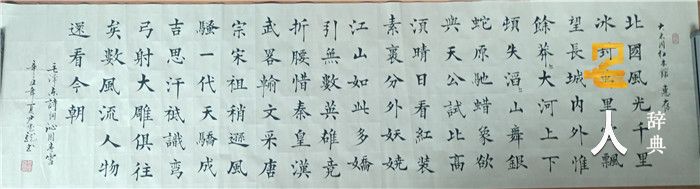 惠存
北國風光千里
冰里飄
望長城內外惟
餘莽大河上下
頓失滔山舞銀
蛇原馳蠟象欲
與天公試比高
須晴日看紅裝
素裹分外妖嬈
江山如此多嬌
引無數英雄競
折腰惜秦皇漢
武畧輸文采唐
宗宋祖稍遜風
騷一代天驕成
吉思汗祗識彎
弓射大雕俱往
矣數風流人物
還看今朝
毛澤東詩詞沁園春雪
辛丑年夏
名人辞典